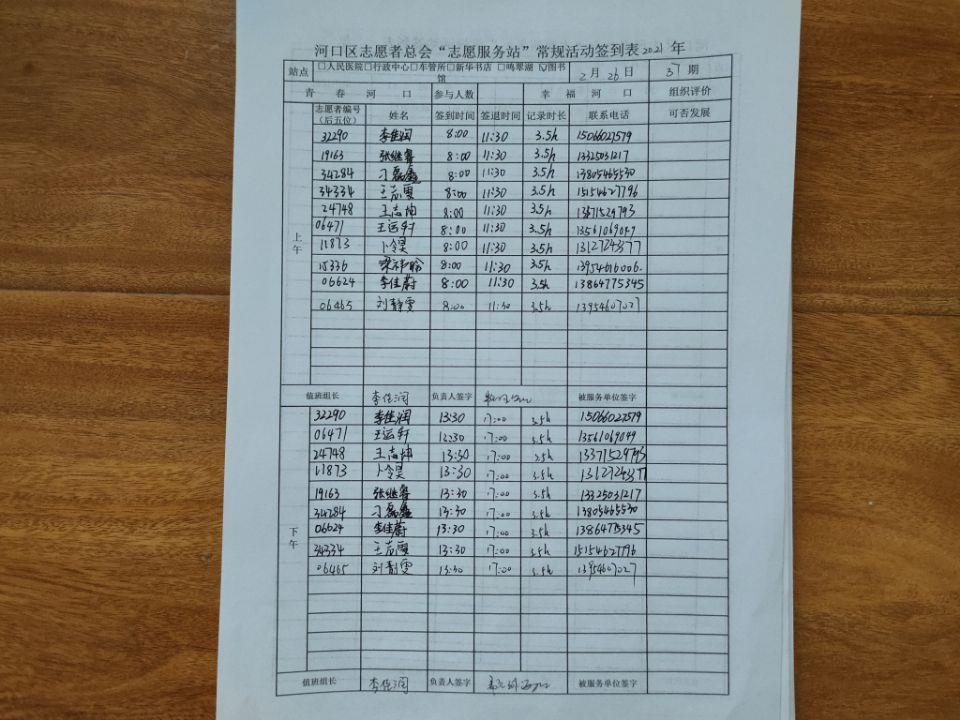 河口区志愿者总会“志愿服务站”常规活动签到表 2021 年
站点 □人民医院□行政中心□车管所□新华书店 □鸣翠湖 ☑图书馆 2 月 26 日 37 期
青 春 河 口 参与人数 幸 福 河 口 组织评价
志愿者编号（后五位） 姓名 签到时间 签退时间 记录时长 联系电话 可否发展
上午
32290 李佳润 8:00 11:30 3.5h 15066027579
19163 张继睿 8:00 11:30 3.5h 13325031217
34284 刁磊鑫 8:00 11:30 3.5h 13805465530
34334 王志雯 8:00 11:30 3.5h 15154627796
24748 王志坤 8:00 11:30 3.5h 13371529793
06471 王运轩 8:00 11:30 3.5h 13561069049
11873 卜令昊 8:00 11:30 3.5h 13127243377
15336 8:00 11:30 3.5h
06624 李佳蔚 8:00 11:30 3.5h 13864775345
06465 刘静雯 8:00 11:30 3.5h 13954607027
值班组长 李佳润 负责人签字 被服务单位签字
下午
32290 李佳润 13:30 17:00 3.5h 15066027579
06471 王运轩 13:30 17:00 3.5h 13561069049
24748 王志坤 13:30 17:00 3.5h 13371529793
11873 卜令昊 13:30 17:00 3.5h 13127243377
19163 张继睿 13:30 17:00 3.5h 13325031217
34284 刁磊鑫 13:30 17:00 3.5h 13805465530
06624 李佳蔚 13:30 17:00 3.5h 13864775345
34334 王志雯 13:30 17:00 3.5h 15154627796
06465 刘静雯 13:30 17:00 3.5h 13954607027
值班组长 李佳润 负责人签字 被服务单位签字